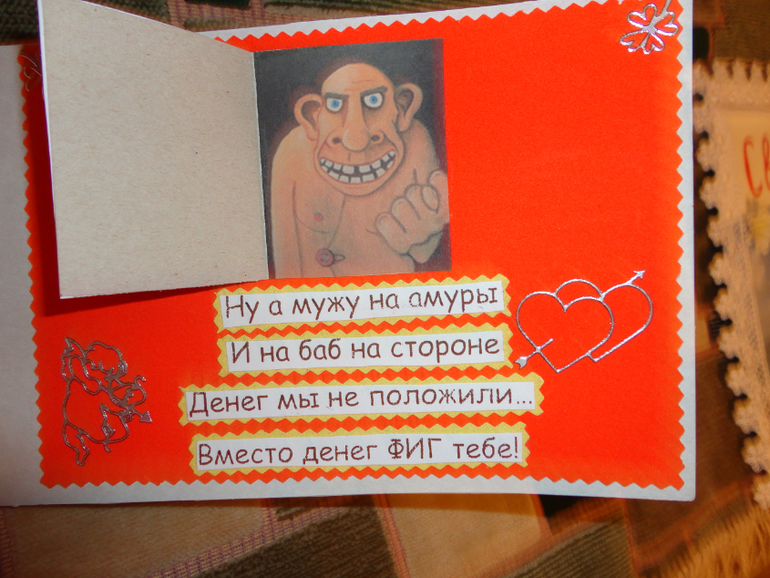 Ну а мужу на амуры
И на баб на стороне
Денег мы не положили...
Вместо денег ФИГ тебе!